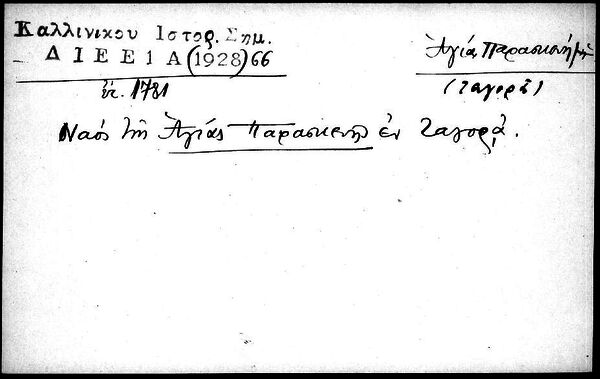 Καλλινικου Ιστορ. Σημ.
Δ Ι Ε Ε 1 Α (1928) 66
ἔτ. 1781
Ἁγίας Παρασκευῆς
(Ζαγορᾶ)
Ναὸς τῆς Ἁγίας Παρασκευῆς ἐν Ζαγορᾷ.